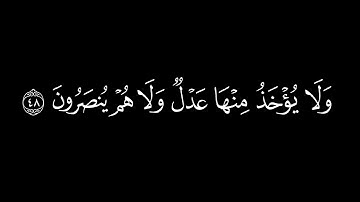 وَلَا يُؤۡخَذُ مِنۡهَا عَدۡلٞ وَلَا هُمۡ يُنصَرُونَ ٤٨